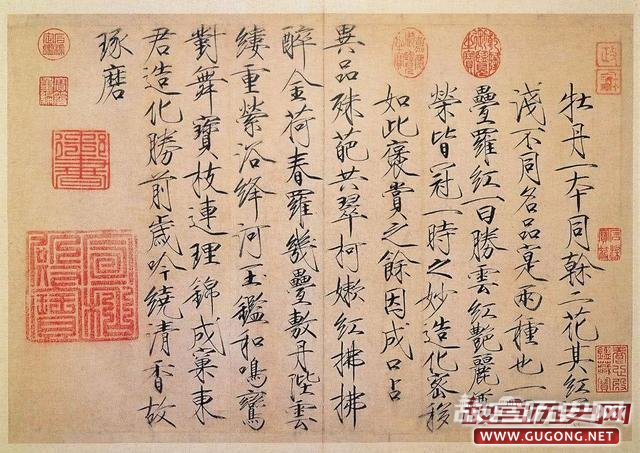 牡丹一本同幹二花其紅深
淺不同名品寔兩種也一
疊羅紅一曰勝雲紅艷麗尊
榮皆冠一時之妙造化密移
如此褒賞之餘因成口占
異品殊葩共翠柯嫩紅拂拂
醉金荷春羅幾疊敷丹陛雲
縷重縈浴絳河玉鑑和鳴鸞
對舞寶枝連理錦成窠東
君造化勝前歲吟繞清香故
琢磨
御書
故宫历史网
WWW.GUGONG.NET